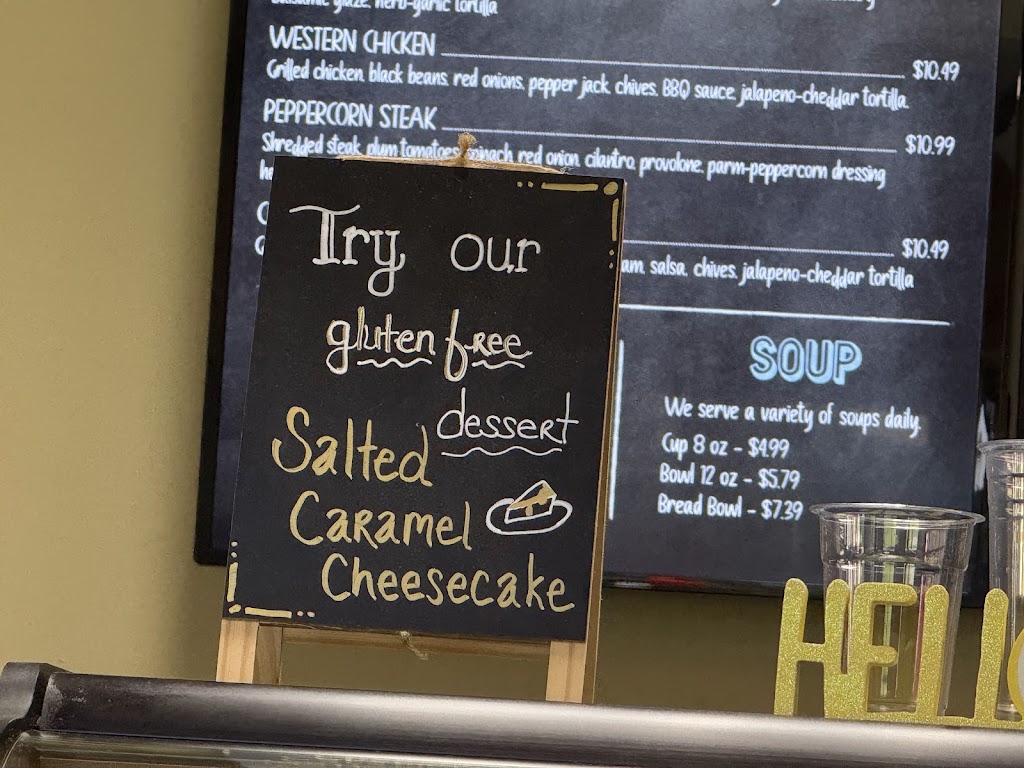 balsamic glaze, herb-garlic tortilla
WESTERN CHICKEN $10.49
Grilled chicken, black beans, red onions, pepper jack, chives, BBQ sauce, jalapeno-cheddar tortilla.
PEPPERCORN STEAK $10.99
Shredded steak, plum tomatoes, spinach, red onion, cilantro, provolone, parm-peppercorn dressing
$10.49
salsa, chives, jalapeno-cheddar tortilla
SOUP
We serve a variety of soups daily.
Cup 8 oz - $4.99
Bowl 12 oz - $5.79
Bread Bowl - $7.39
Try our
gluten free
dessert
Salted
Caramel
Cheesecake
HELLO